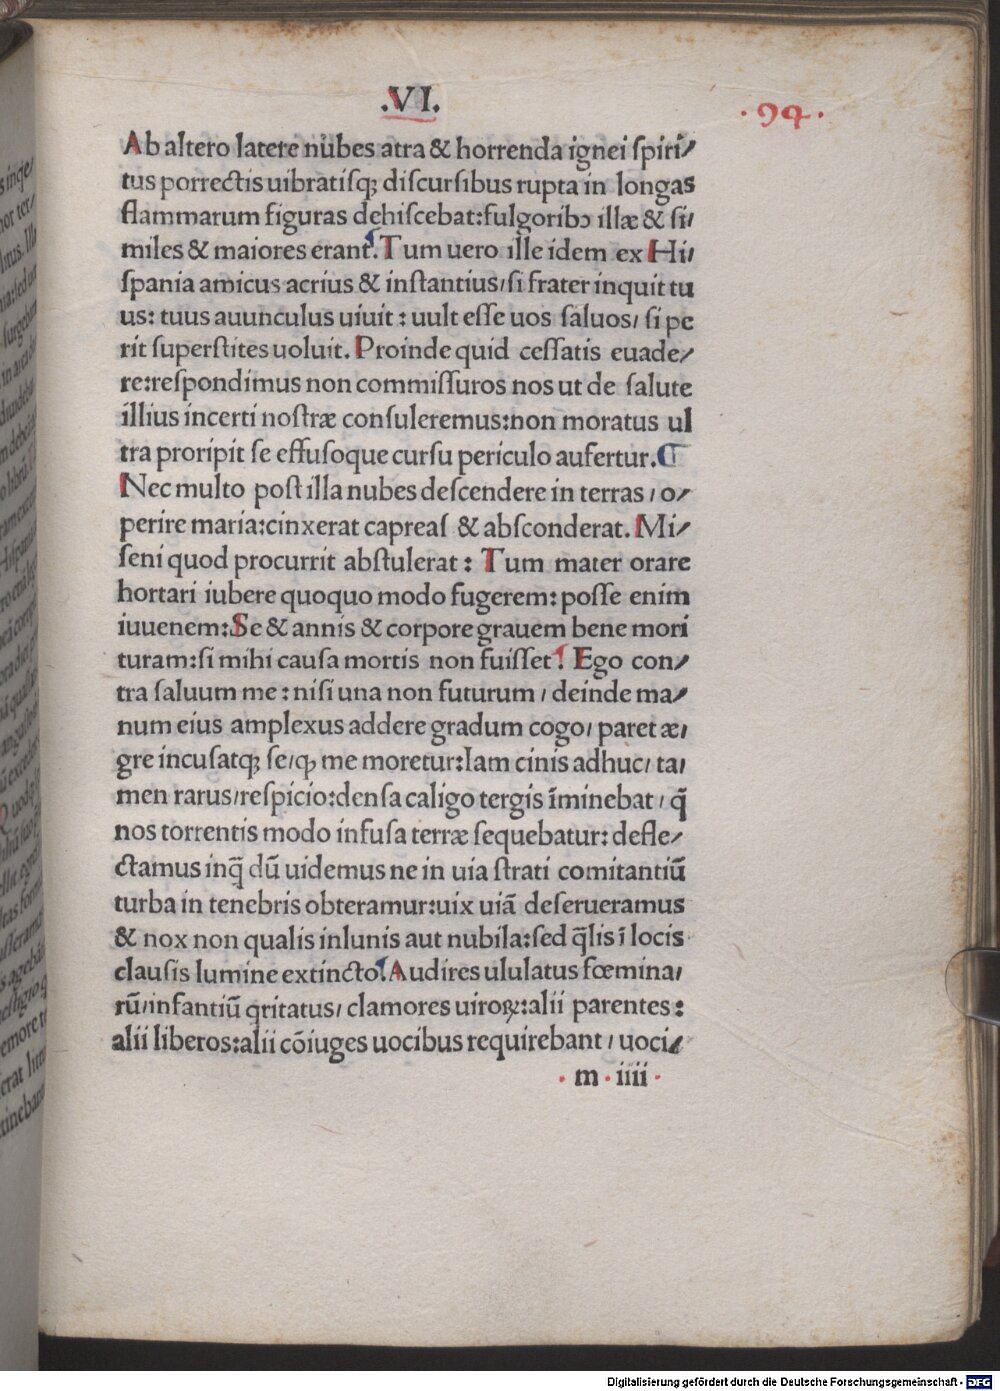 .VI.
·94·
Ab altero latere nubes atra & horrenda ignei ſpiri/
tus porrectis uibratiſqꝫ diſcurſibus rupta in longas
flammarum figuras dehiſcebat:fulgoribꝰ illæ & ſi/
miles & maiores erant.Tum uero ille idem ex Hi/
ſpania amicus acrius & inſtantius/ſi frater inquit tu
us: tuus auunculus uiuit : uult eſſe uos ſaluos/ ſi pe
rit ſuperſtites uoluit. Proinde quid ceſſatis euade/
re:reſpondimus non commiſſuros nos ut de ſalute
illius incerti noſtræ conſuleremus:non moratus ul
tra proripit ſe effuſoque curſu periculo aufertur.
Nec multo poſt illa nubes deſcendere in terras / o/
perire maria:cinxerat capreaſ & abſconderat. Mi/
ſeni quod procurrit abſtulerat : Tum mater orare
hortari iubere quoquo modo fugerem: poſſe enim
iuuenem:Se & annis & corpore grauem bene mori
turam:ſi mihi cauſa mortis non fuiſſet. Ego con/
tra ſaluum me : niſi una non futurum / deinde ma/
num eius amplexus addere gradum cogo/ paret æ/
gre incuſatqꝫ ſe/ꝙ me moretur:Iam cinis adhuc/ ta/
men rarus/reſpicio:denſa caligo tergis īminebat / q̄
nos torrentis modo infuſa terræ ſequebatur: defle/
ctamus inq̄ dū uidemus ne in uia ſtrati comitantiū
turba in tenebris obteramur:uix uiā deſerueramus
& nox non qualis inlunis aut nubila:ſed q̄lis ī locis
clauſis lumine extincto.Audires ululatus fœmina/
rū/infantiū qritatus/ clamores uiroꝝ:alii parentes :
alii liberos:alii cōiuges uocibus requirebant / uoci/
· m · iiii ·
Digitalisierung gefördert durch die Deutsche Forschungsgemeinschaft - DFG